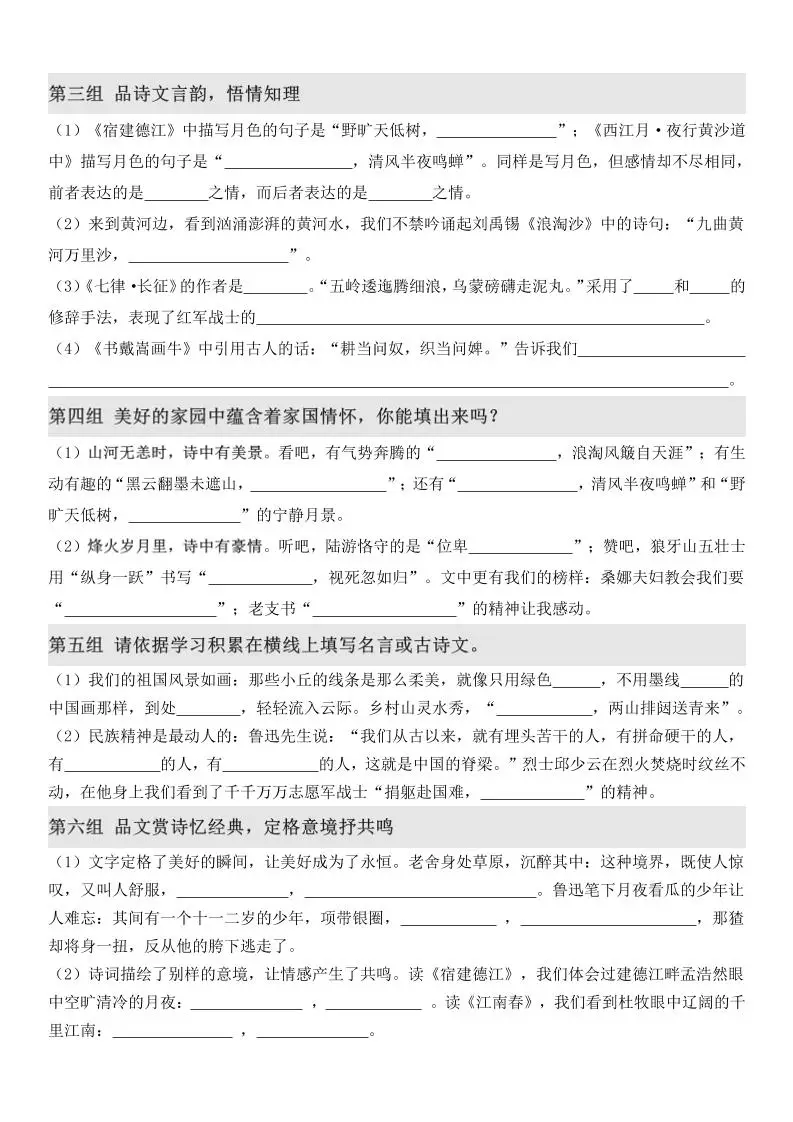 第三组 品诗文言韵，悟情知理
（1）《宿建德江》中描写月色的句子是“野旷天低树，_______________”；《西江月·夜行黄沙道
中》描写月色的句子是“________________，清风半夜鸣蝉”。同样是写月色，但感情却不尽相同，
前者表达的是________之情，而后者表达的是________之情。
（2）来到黄河边，看到汹涌澎湃的黄河水，我们不禁吟诵起刘禹锡《浪淘沙》中的诗句：“九曲黄
河万里沙，____________________”。
（3）《七律·长征》的作者是________。“五岭逶迤腾细浪，乌蒙磅礴走泥丸。”采用了_____和_____的
修辞手法，表现了红军战士的________________________________________________________。
（4）《书戴嵩画牛》中引用古人的话：“耕当问奴，织当问婢。”告诉我们_____________________
_____________________________________________________________________________________。
第四组 美好的家园中蕴含着家国情怀，你能填出来吗？
（1）山河无恙时，诗中有美景。看吧，有气势奔腾的“_______________，浪淘风簸自天涯”；有生
动有趣的“黑云翻墨未遮山，_________________”；还有“_______________，清风半夜鸣蝉”和“野
旷天低树，______________”的宁静月景。
（2）烽火岁月里，诗中有豪情。听吧，陆游恪守的是“位卑_____________”；赞吧，狼牙山五壮士
用“纵身一跃”书写“_____________，视死忽如归”。文中更有我们的榜样：桑娜夫妇教会我们要
“___________________”；老支书“__________________”的精神让我感动。
第五组 请依据学习积累在横线上填写名言或古诗文。
（1）我们的祖国风景如画：那些小丘的线条是那么柔美，就像只用绿色______，不用墨线______的
中国画那样，到处________，轻轻流入云际。乡村山灵水秀，“____________，两山排闼送青来”。
（2）民族精神是最动人的：鲁迅先生说：“我们从古以来，就有埋头苦干的人，有拼命硬干的人，
有____________的人，有____________的人，这就是中国的脊梁。”烈士邱少云在烈火焚烧时纹丝不
动，在他身上我们看到了千千万万志愿军战士“捐躯赴国难，_____________”的精神。
第六组 品文赏诗忆经典，定格意境抒共鸣
（1）文字定格了美好的瞬间，让美好成为了永恒。老舍身处草原，沉醉其中：这种境界，既使人惊
叹，又叫人舒服，______________，_____________________________。鲁迅笔下月夜看瓜的少年让
人难忘：其间有一个十一二岁的少年，项带银圈，____________，______________________，那猹
却将身一扭，反从他的胯下逃走了。
（2）诗词描绘了别样的意境，让情感产生了共鸣。读《宿建德江》，我们体会过建德江畔孟浩然眼
中空旷清冷的月夜：______________，____________。读《江南春》，我们看到杜牧眼中辽阔的千
里江南：_______________，______________。